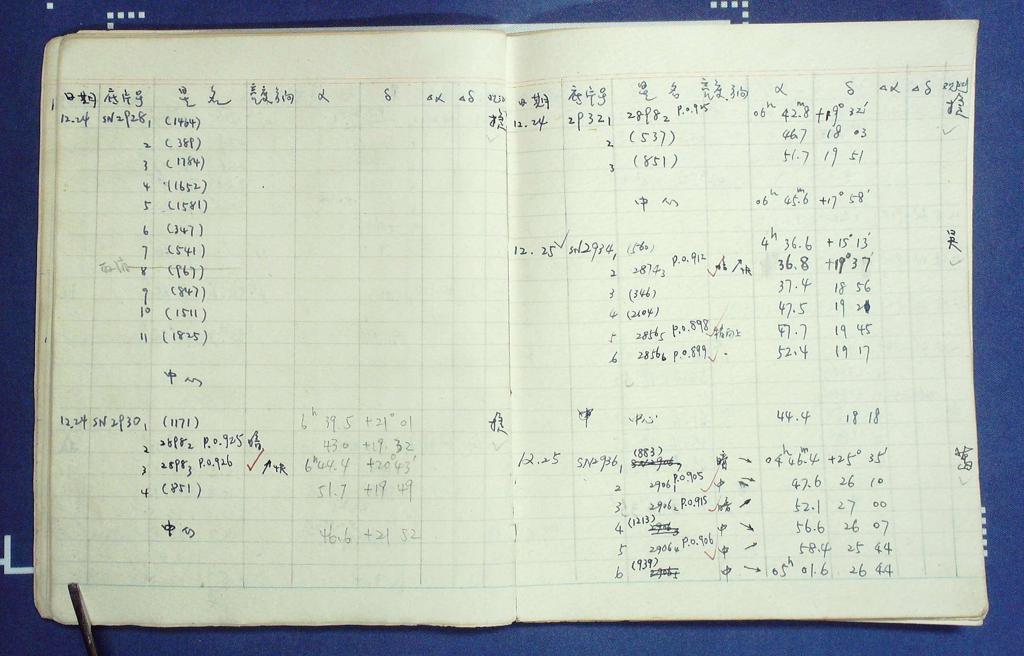 日期 底片号 星名 亮度 方向 α δ Δα Δδ
12.24 SN2928₁ (1464)
2 (389)
3 (1784)
4 (1652)
5 (1581)
6 (347)
7 (541)
8 (967)
9 (847)
10 (1511)
11 (1825)
中心
12.24 SN2930₁ (1171) 6ʰ 39.5 +21° 01
2 2898₂ P.O.925 暗 43.0 +19. 32
3 2898₃ P.O.926 ✓ ↗快 6ʰ44.4 +20°43′
4 (851) 51.7 +19 49
中心 46.6 +21 52
日期 底片号 星名 亮度 方向 α δ Δα Δδ
12.24 2932₁ 2898₂ P.O.925 06ʰ 42.8ᵐ +19° 32′
2 (537) 46.7 18 03
3 (851) 51.7 19 51
中心 06ʰ 45.6ᵐ +17° 58′
12.25 ✓ SN2934₁ (560) 4ʰ 36.6 +15° 13′
2 2874₃ P.O.912 ✓ 暗 ↗快 36.8 +19° 37′
3 (346) 37.4 18 56
4 (2104) 47.5 19 21
5 2856₅ P.O.898 ✓ 47.7 19 45
6 2856₆ P.O.899 ✓ 52.4 19 17
中心 44.4 18 18
12.25 SN2936₁ (883) 暗 → 04ʰ 46.4ᵐ +25° 35′
2 2906₁ P.O.905 ✓ 中 → 47.6 26 10
3 2906₂ P.O.915 ✓ 暗 52.1 27 00
4 (1213) 中 56.6 26 07
5 2906₄ P.O.906 ✓ 中 58.4 25 44
6 (939) 中 → 05ʰ 01.6 26 44